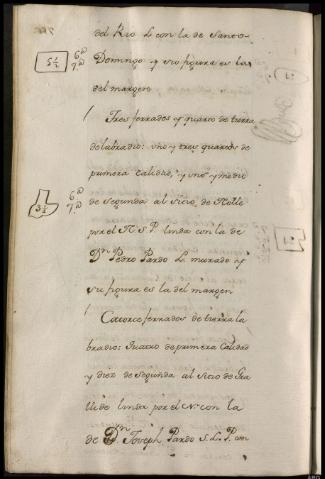 del Rio L con la de Santo
Domingo y su figura es la
del margen
Tres ferrados y quarto de tierra
de labradio: uno y tres quartos de
primera calidad, y uno y medio
de segunda al sitio de
por el N. S. P. linda con la de
Dn Pedro Pardo L. murado y
su figura es la del margen
Catorce ferrados de tierra la
bradio: quatro de primera calidad
y diez de segunda al sitio de
linda por el N. con la
de Dn Joseph Pardo S. L. P. con